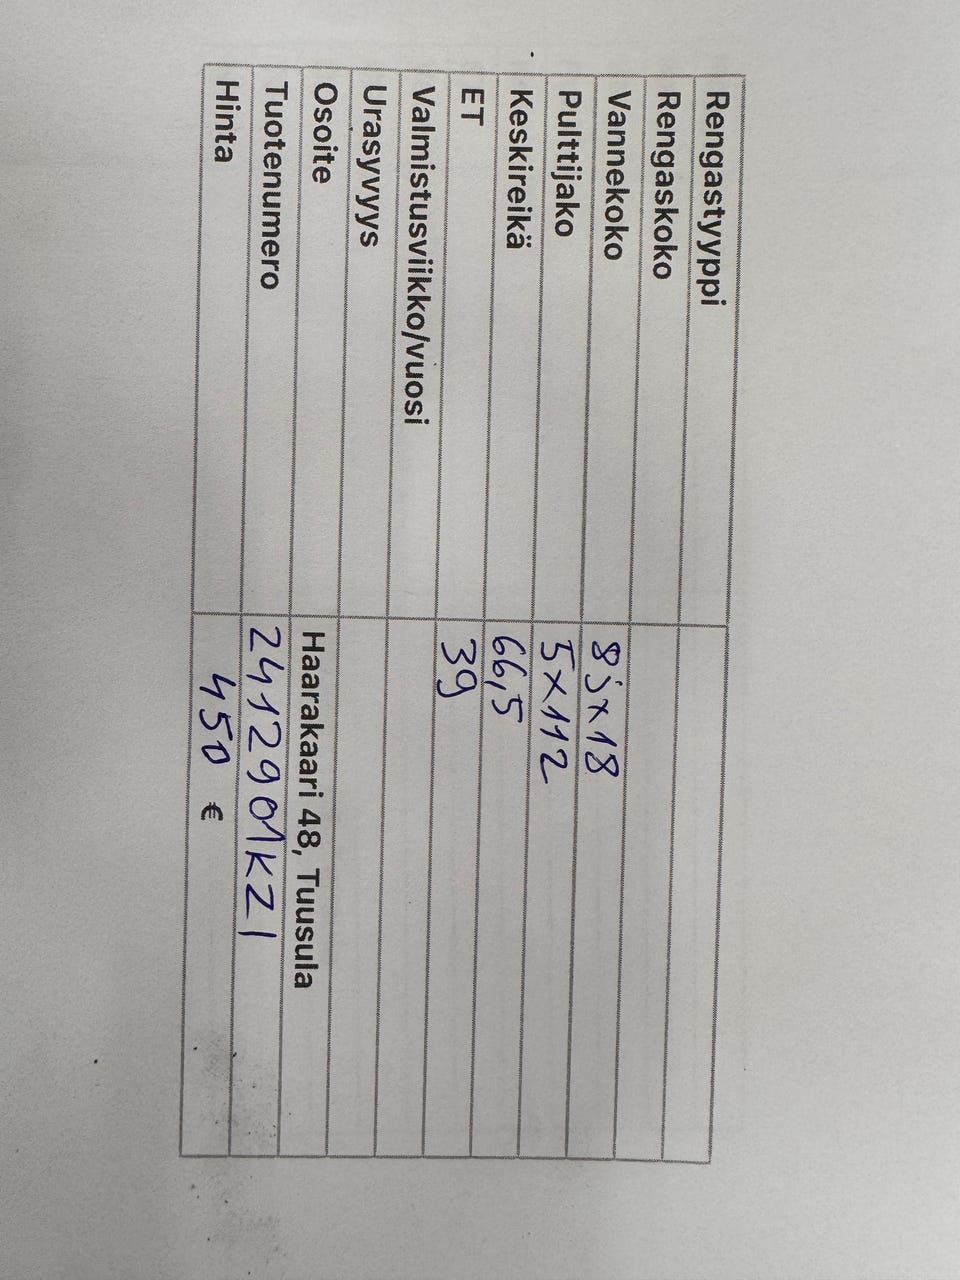 Rengastyyppi
Rengaskoko
Vannekoko 8jx18
Pulttijako 5x112
Keskireikä 66,5
ET 39
Valmistusviikko/vuosi
Urasyvyys
Osoite Haarakaari 48, Tuusula
Tuotenumero 2412901KZI
Hinta 450 €